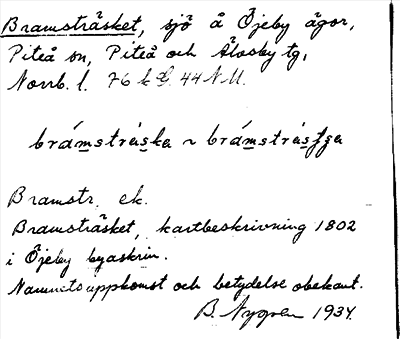 Bramsträsket, sjö å Öjeby ägor,
Piteå sn, Piteå och Älvsby tg,
Norrb. l. 76 k 44 N.M.
brámsträska ~ brámsträsʃʃa
Bramstr. ek.
Bramsträsket, kartbeskrivning 1802
i Öjeby byaskrin.
Namnets uppkomst och betydelse obekant.
B. Nygren 1934.